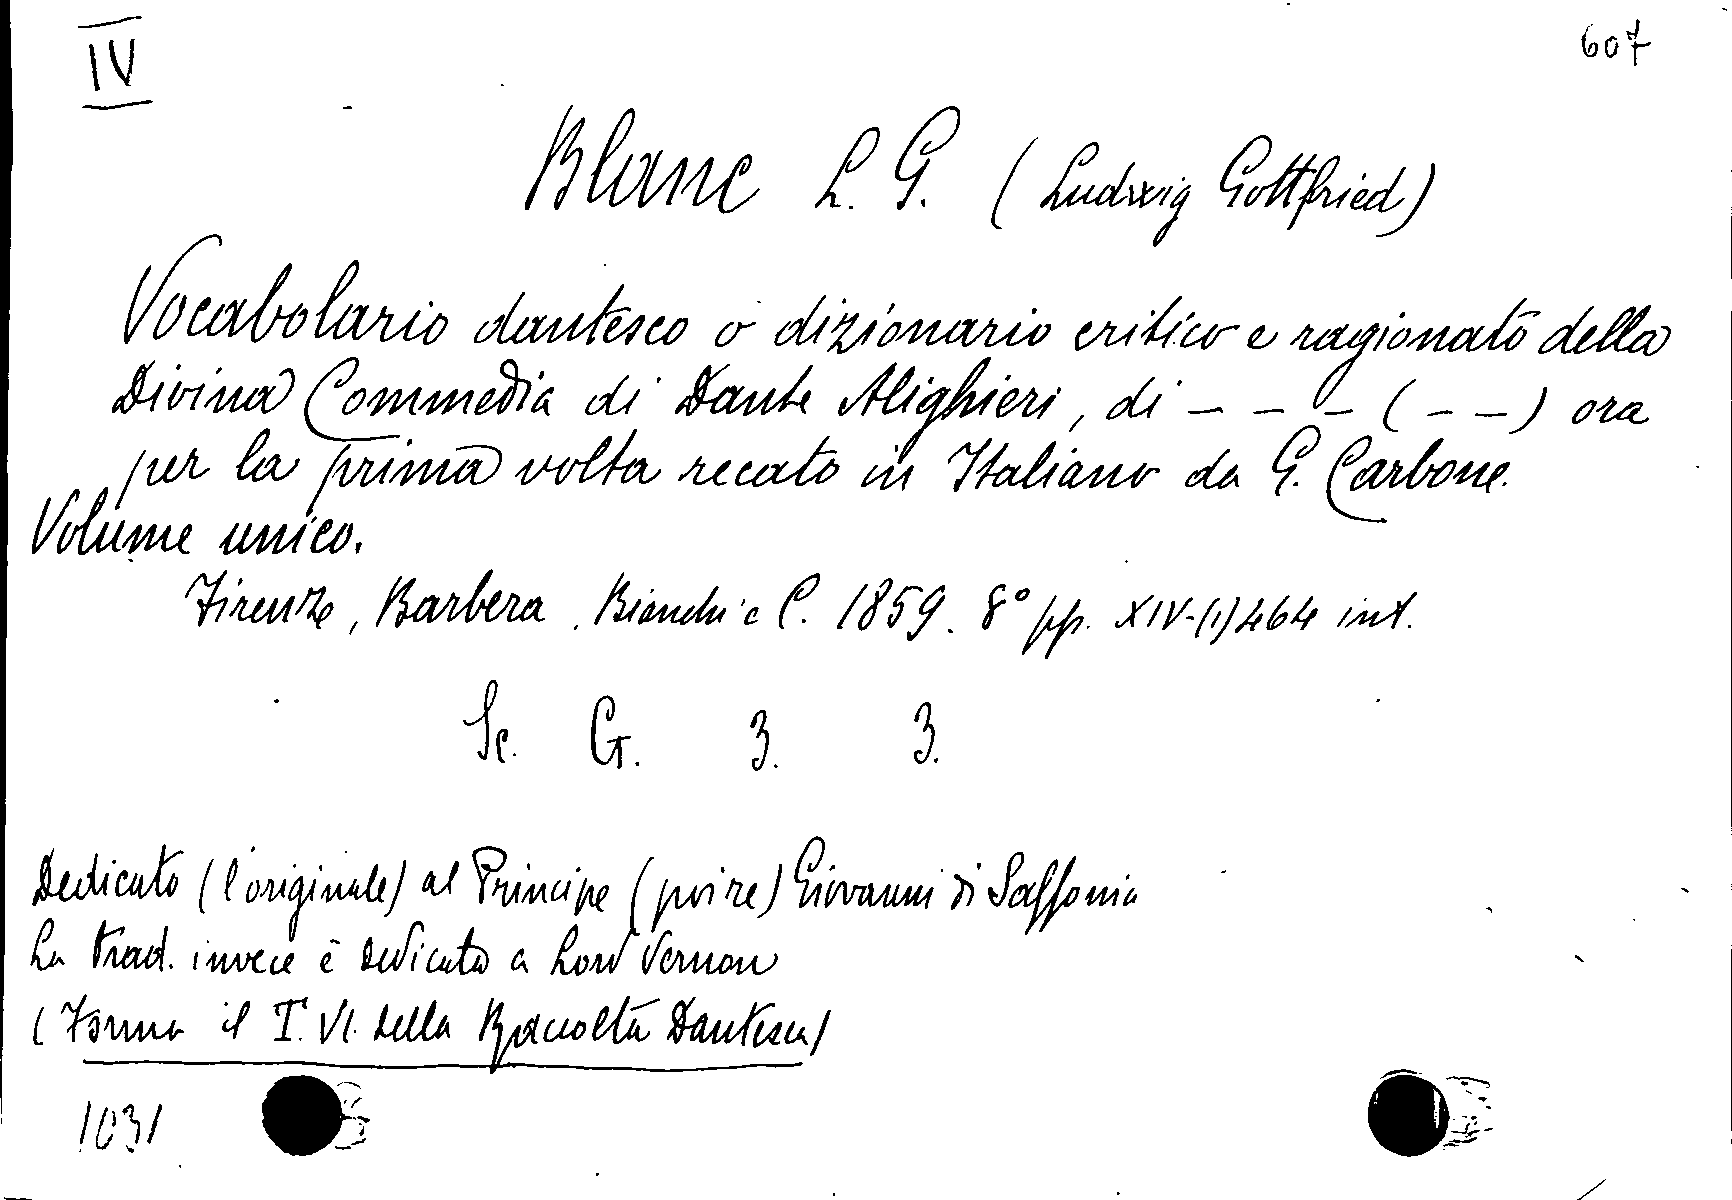 IV
607
Blanc L. G. (Ludwig Gottfried)
Vocabolario dantesco o dizionario critico e ragionato della
Divina Commedia di Dante Alighieri, di - - - (- -) ora
per la prima volta recato in Italiano da G. Carbone.
Volume unico.
Firenze, Barbera. Bianchi e C. 1859. 8° pp. XIV-(1)464 int.
Sc. G. 3. 3.
Dedicato (l'originale) al Principe (poi re) Giovanni di Sassonia
La trad. invece è dedicata a Lord Vernon
(Forma il T. VI. della Raccolta Dantesca)
1031